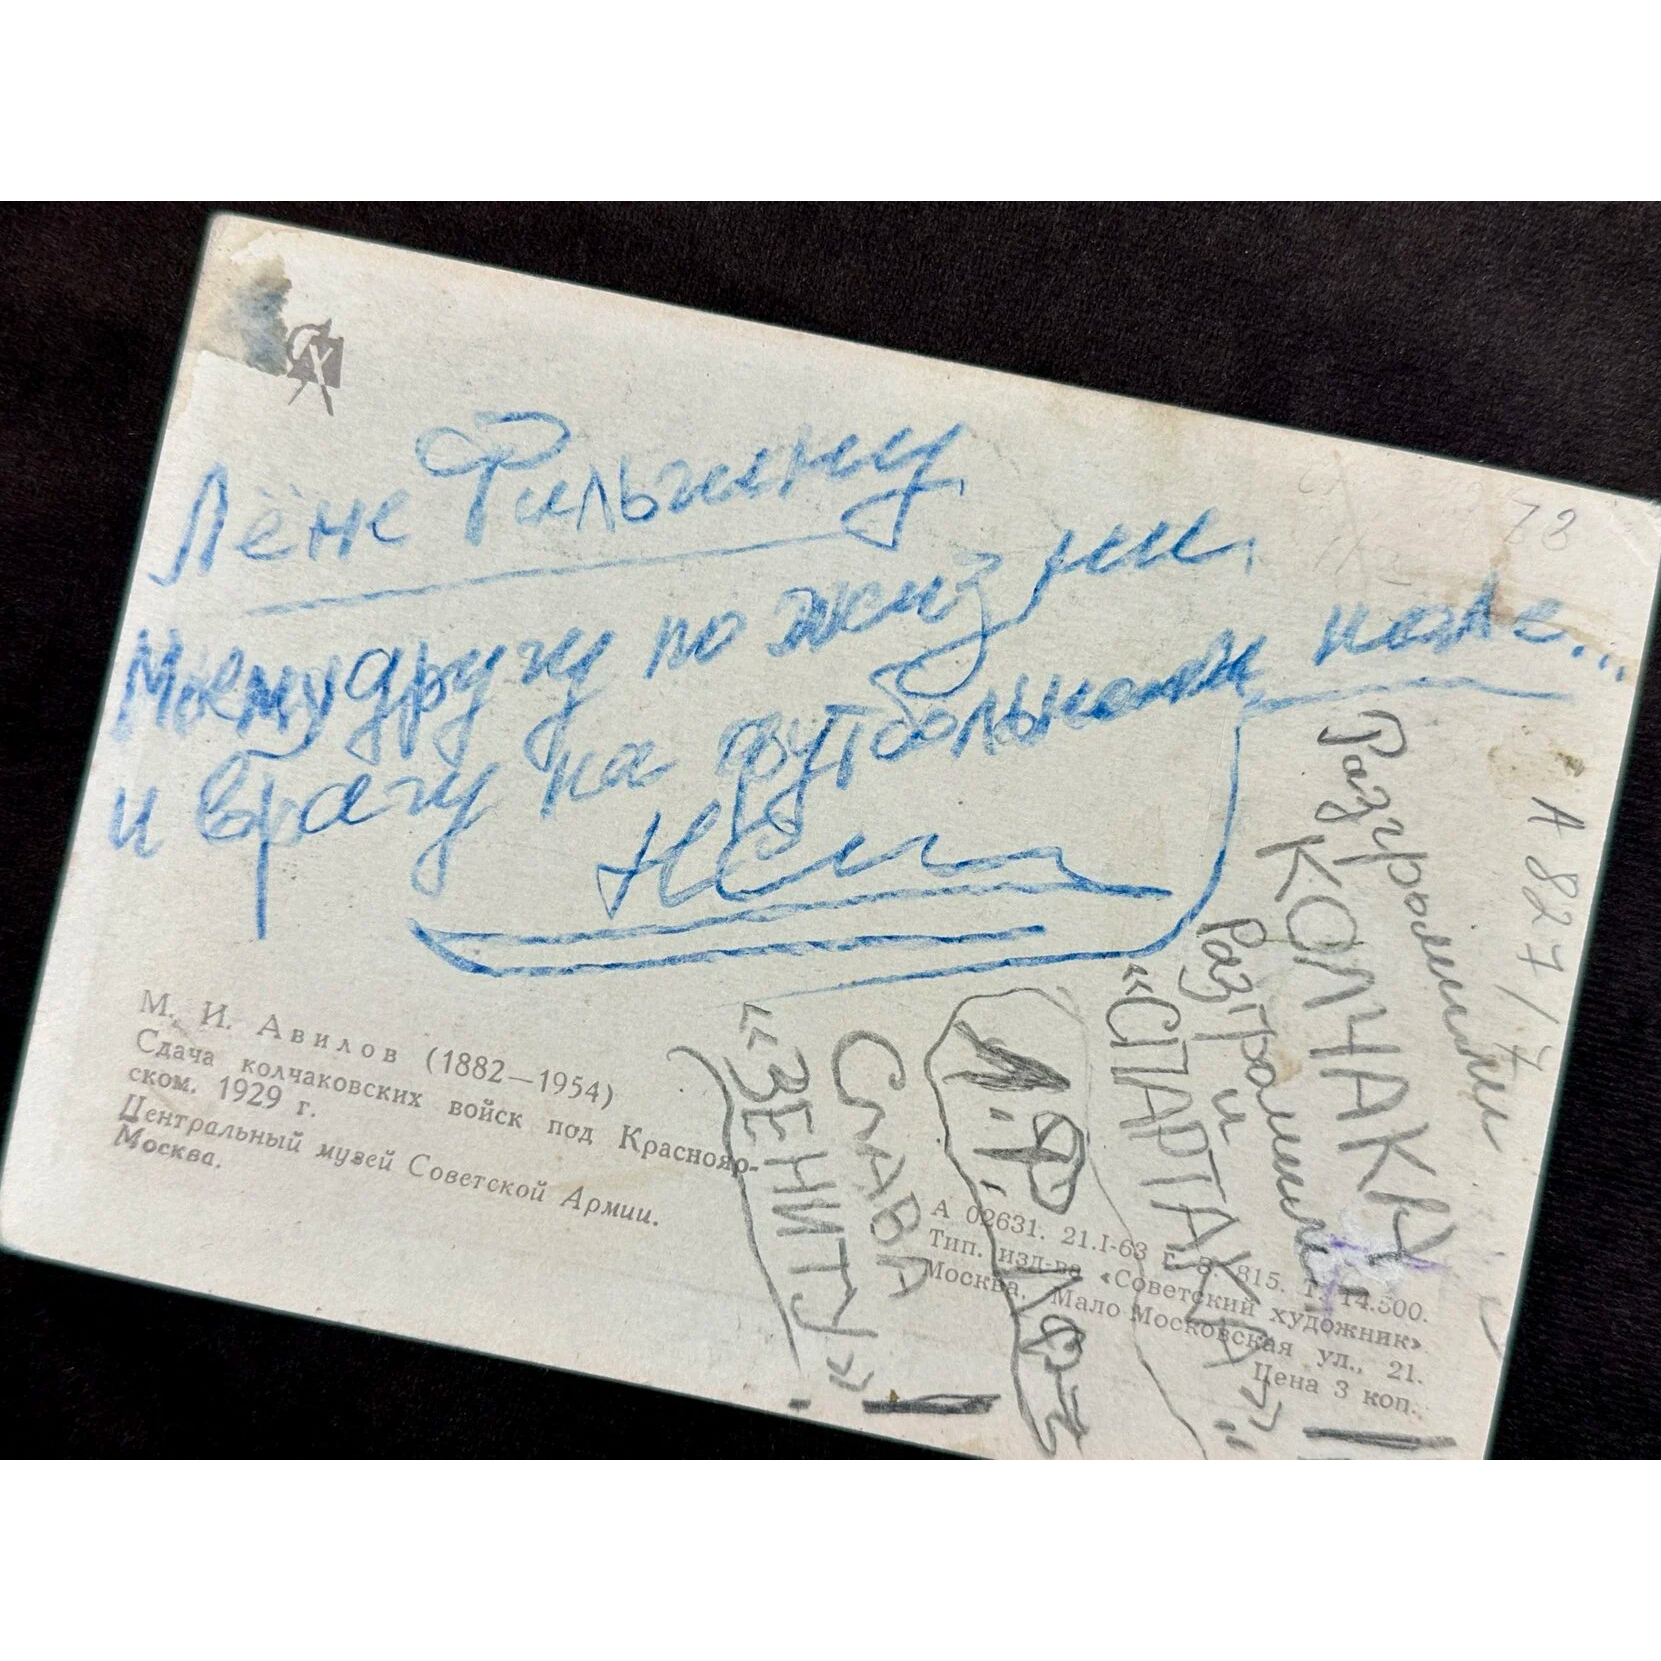 Лёне Фильгину,
Моему другу по жизни,
и врагу на футбольном поле...
М. И. Авилов (1882—1954)
Сдача колчаковских войск под Краснояр-
ском. 1929 г.
Центральный музей Советской Армии.
Москва.
А 02631. 21.I-63 г. З. 815. Т. 14.500.
Тип. изд-ва «Советский художник»
Москва, Мало Московская ул., 21.
Цена 3 коп.
А 827/7
Разгромили
КОЛЧАКА
Разгромим
и
«СПАРТАКА»!
Л.Ф.
СЛАВА
«ЗЕНИТУ»!